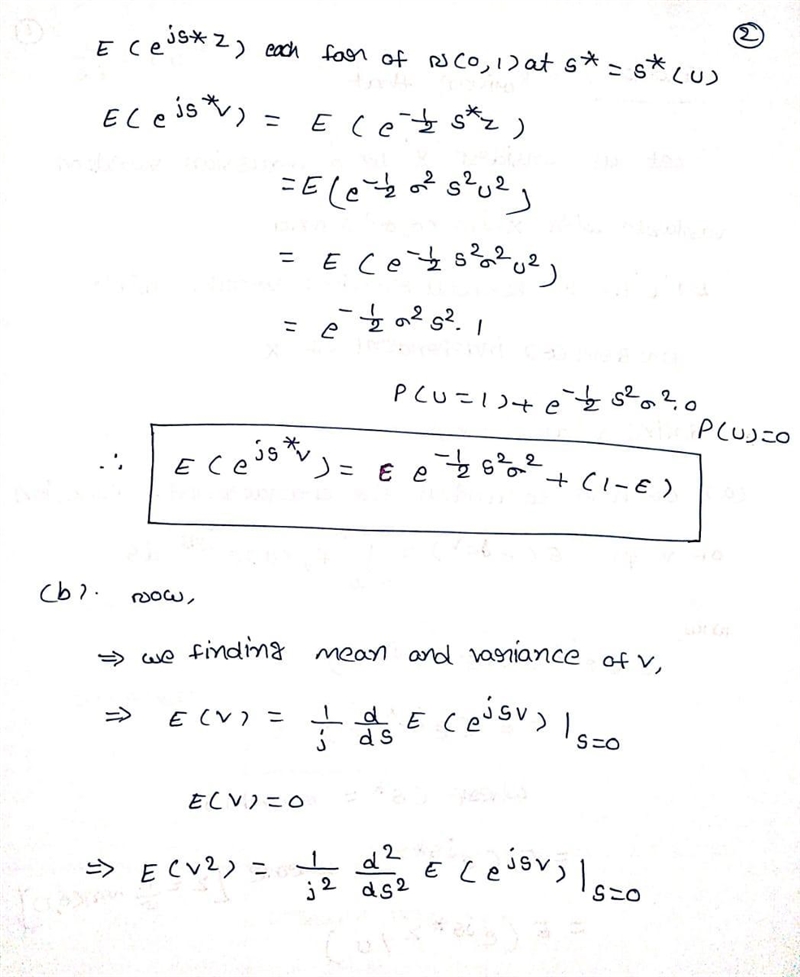 ②
E(e^{js*z}) each for of N(0,1) at s* = s*(U)
E(e^{js*v}) = E(e^{-1/2 s*z})
= E(e^{-1/2 σ² s² U²})
= E(e^{-1/2 s² σ² U²})
= e^{-1/2 σ² s²·1}
P(U=1) + e^{-1/2 s² σ²·0}
P(U)=0
∴ E(e^{js*v}) = ϵ e^{-1/2 s² σ²} + (1-ϵ)
(b). now,
⇒ we finding mean and variance of v,
⇒ E(V) = 1/j d/ds E(e^{jsv})|_{s=0}
E(V)=0
⇒ E(V2) = 1/j² d²/ds² E(e^{jsv})|_{s=0}